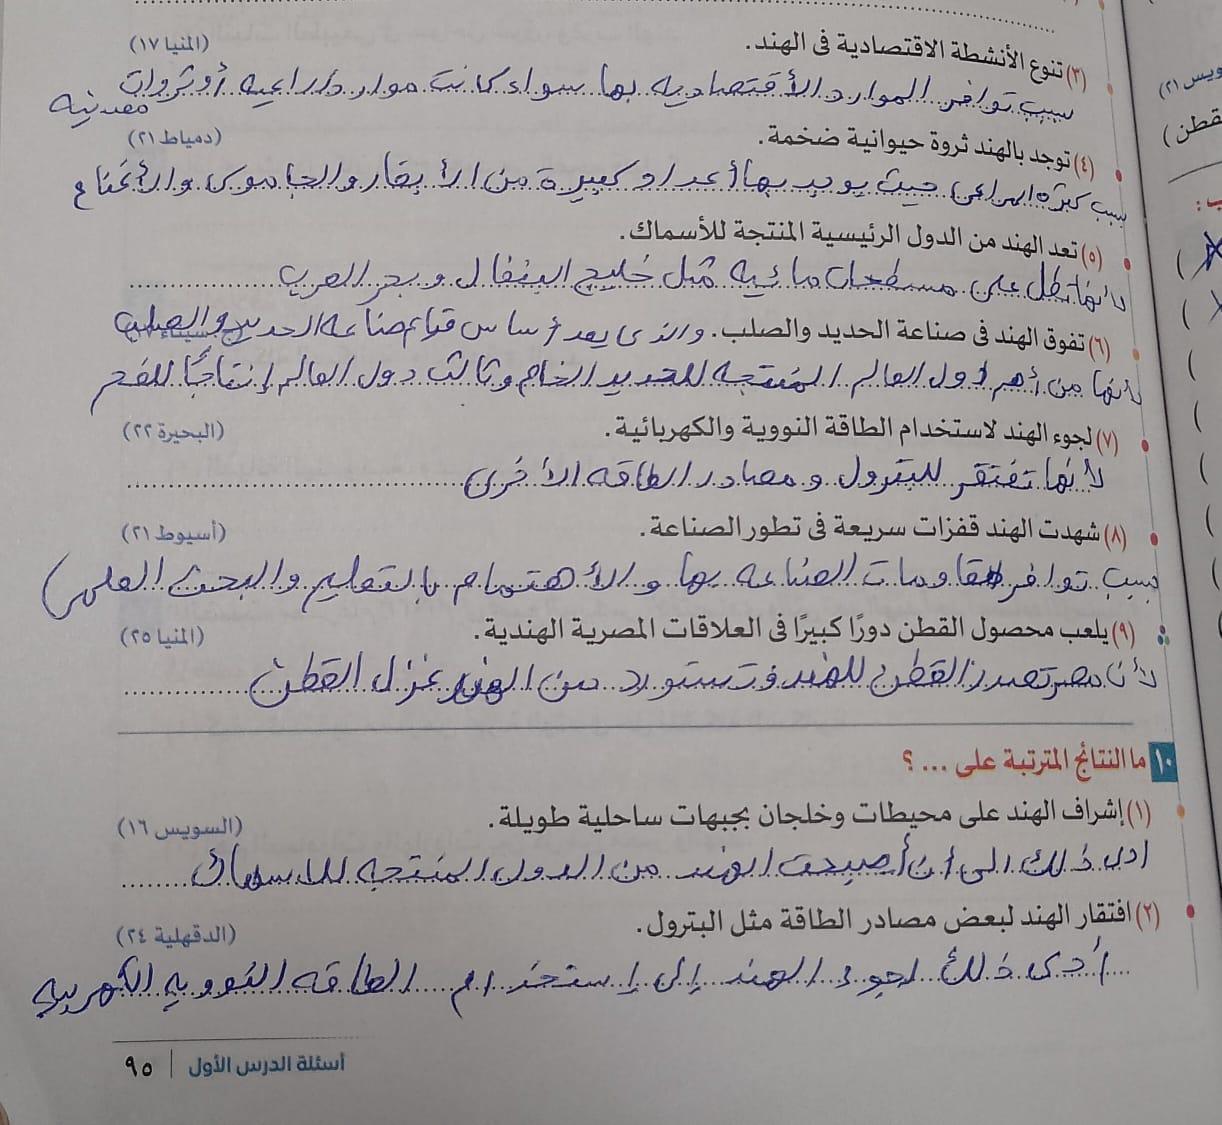 (٣) تنوع الأنشطة الاقتصادية فى الهند. (المنيا ١٧)
بسبب توافر الموارد الأقتصاديه بها سواء كانت موارد زراعيه أو ثروات
معدنيه
(٤) توجد بالهند ثروة حيوانية ضخمة. (دمياط ٢١)
بسبب كثرة المراعى حيث يوجد بها أعداد كبيرة من الأبقار والجاموس والأغنام
(٥) تعد الهند من الدول الرئيسية المنتجة للأسماك.
لأنها تطل على مسطحات مائيه مثل خليج البنغال وبحر العرب
(٦) تفوق الهند فى صناعة الحديد والصلب. والذى يعد أساس قيام صناعه الحديد والصلب
لأنها من أهم دول العالم المنتجه للحديد الخام وثالث دول العالم إنتاجًا للفحم
(٧) لجوء الهند لاستخدام الطاقة النووية والكهربائية. (البحيرة ٢٢)
لأنها تفتقر للبترول ومصادر الطاقه الأخرى
(٨) شهدت الهند قفزات سريعة فى تطور الصناعة. (أسيوط ٢١)
بسبب توافر مقاومات الصناعه بها والأهتمام بالتعليم والبحث العلمى
(٩) يلعب محصول القطن دورًا كبيرًا فى العلاقات المصرية الهندية. (المنيا ٢٥)
لأن مصر تصدر القطن للهند وتستورد من الهند غزل القطن
١٠ ما النتائج المترتبة على ... ؟
(١) إشراف الهند على محيطات وخلجان بجبهات ساحلية طويلة. (السويس ١٦)
ادى ذلك الى أن أصبحت الهند من الدول المنتجه للاسماك
(٢) افتقار الهند لبعض مصادر الطاقة مثل البترول. (الدقهلية ٢٤)
أدى ذلك لجوء الهند إلى إستخدام الطاقه النوويه الكهربيه
أسئلة الدرس الأول | ٩٥